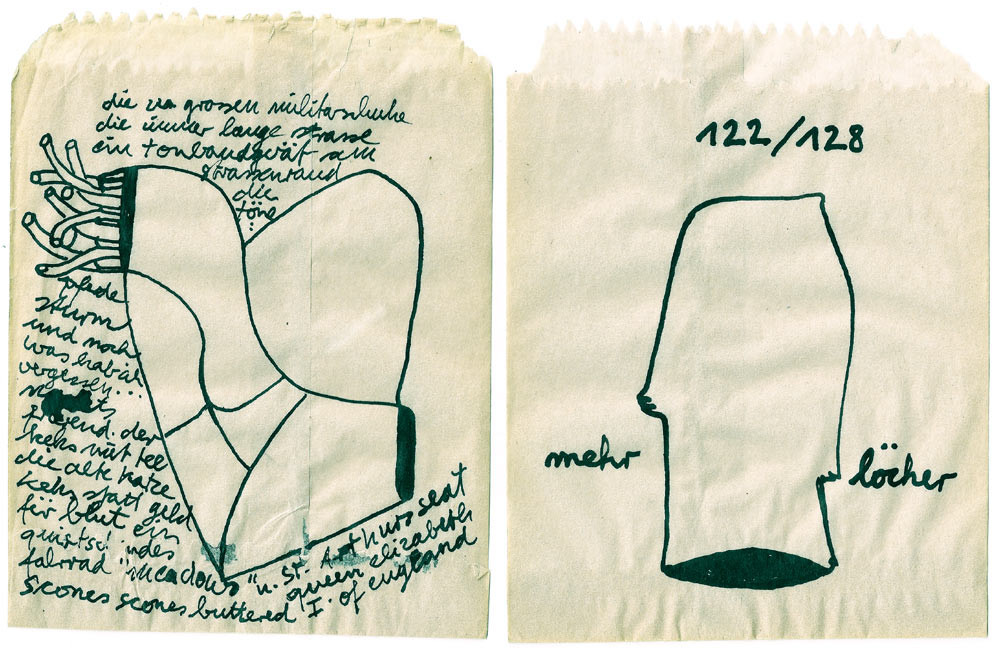 die zu grossen militärschuhe
die immer lange strasse
ein tonbandgerät am
strassenrand
die
töne
pferde
sturm
und noch
was hab ich
vergessen...
der
keks mit tee
die alte katze
keks statt geld
für blut ein
quietschendes
fahrrad "meadows" u. st. Arthurs seat
queen elizabeth
scones scones buttered I. of england
122/128
mehr löcher